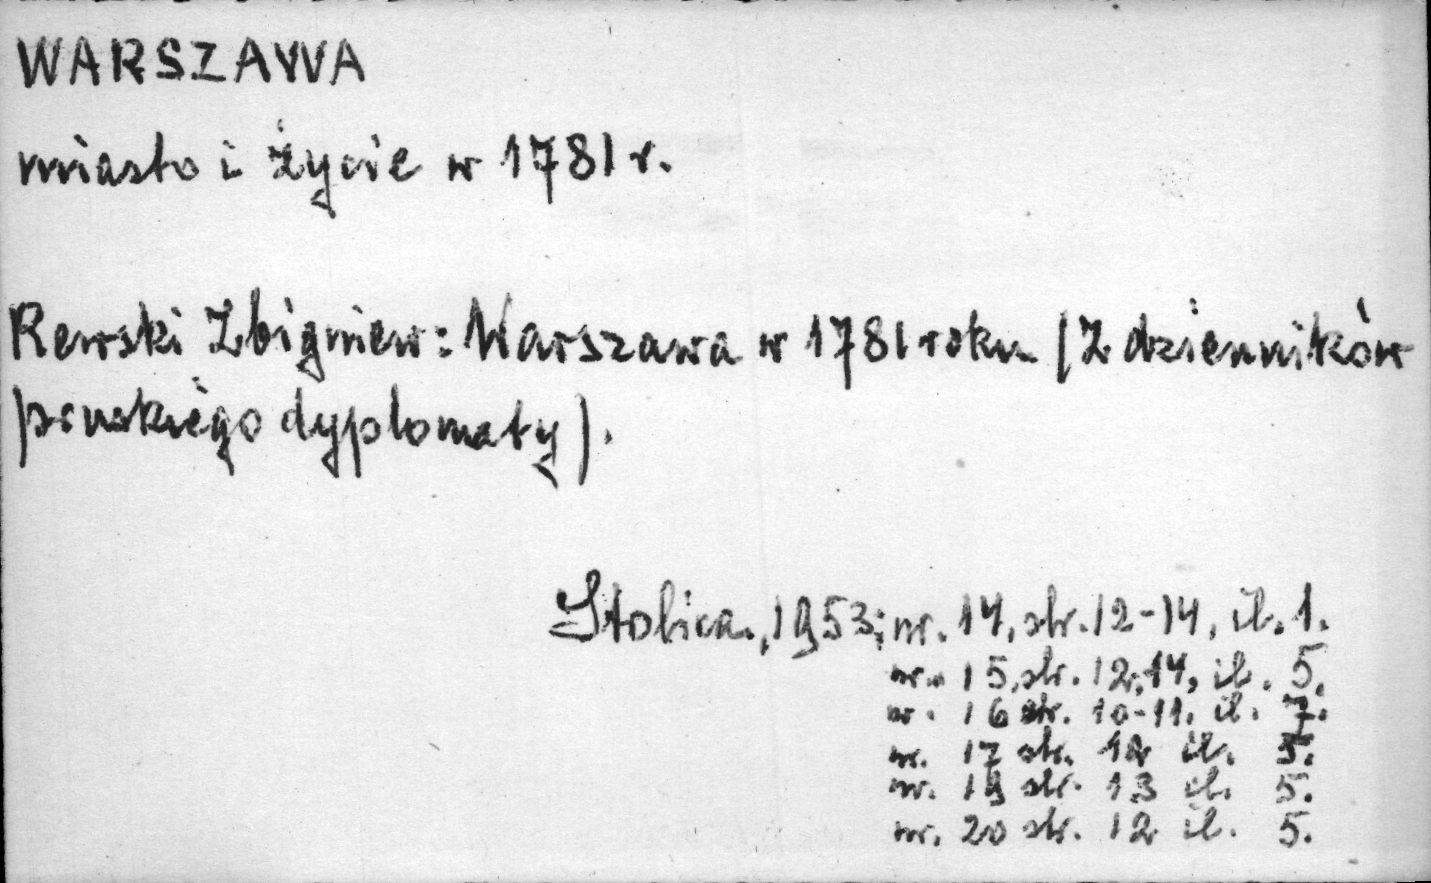 WARSZAWA
miasto i życie w 1781 r.
Rewski Zbigniew: Warszawa w 1781 roku (Z dzienników
pruskiego dyplomaty).
Stolica, 1953; nr. 14, str. 12-14, il. 1.
nr. 15, str. 12,14, il. 5.
nr. 16 str. 10-11. il. 7.
nr. 17 str. 12 il. 5.
nr. 19 str. 13 il. 5.
nr. 20 str. 12 il. 5.